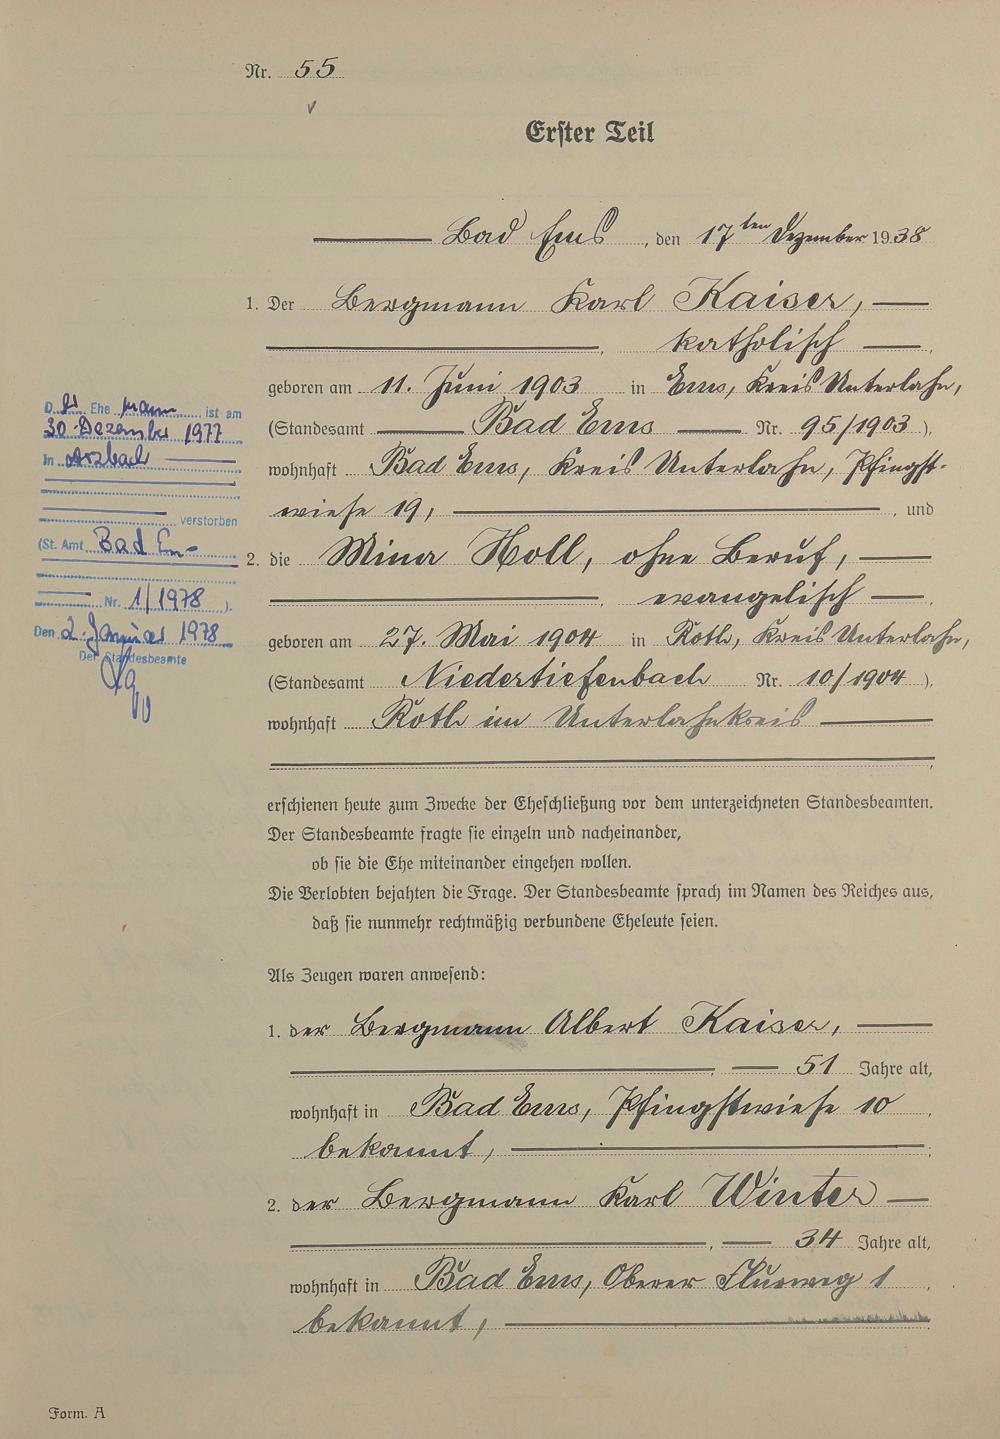 Nr. 55
Erster Teil
Bad Ems, den 17ten Dezember 1938
1. Der Bergmann Karl Kaiser,
katholisch,
geboren am 11. Juni 1903 in Ems, Kreis Unterlahn,
(Standesamt Bad Ems Nr. 95/1903),
wohnhaft Bad Ems, Kreis Unterlahn, Pfingst-
wiese 19, und
2. die Mina Holl, ohne Beruf,
evangelisch,
geboren am 27. Mai 1904 in Roth, Kreis Unterlahn,
(Standesamt Niedertiefenbach Nr. 10/1904),
wohnhaft Roth im Unterlahnkreis
erschienen heute zum Zwecke der Eheschließung vor dem unterzeichneten Standesbeamten.
Der Standesbeamte fragte sie einzeln und nacheinander,
ob sie die Ehe miteinander eingehen wollen.
Die Verlobten bejahten die Frage. Der Standesbeamte sprach im Namen des Reiches aus,
daß sie nunmehr rechtmäßig verbundene Eheleute seien.
Als Zeugen waren anwesend:
1. der Bergmann Albert Kaiser,
51 Jahre alt,
wohnhaft in Bad Ems, Pfingstwiese 10,
bekannt,
2. der Bergmann Karl Winter
34 Jahre alt,
wohnhaft in Bad Ems, Oberer Flurweg 1,
bekannt,
Der Ehemann ist am
30. Dezember 1977
in Arzbach
verstorben
(St. Amt Bad Ems
Nr. 1/1978).
Den 2. Januar 1978
Der Standesbeamte
Form. A